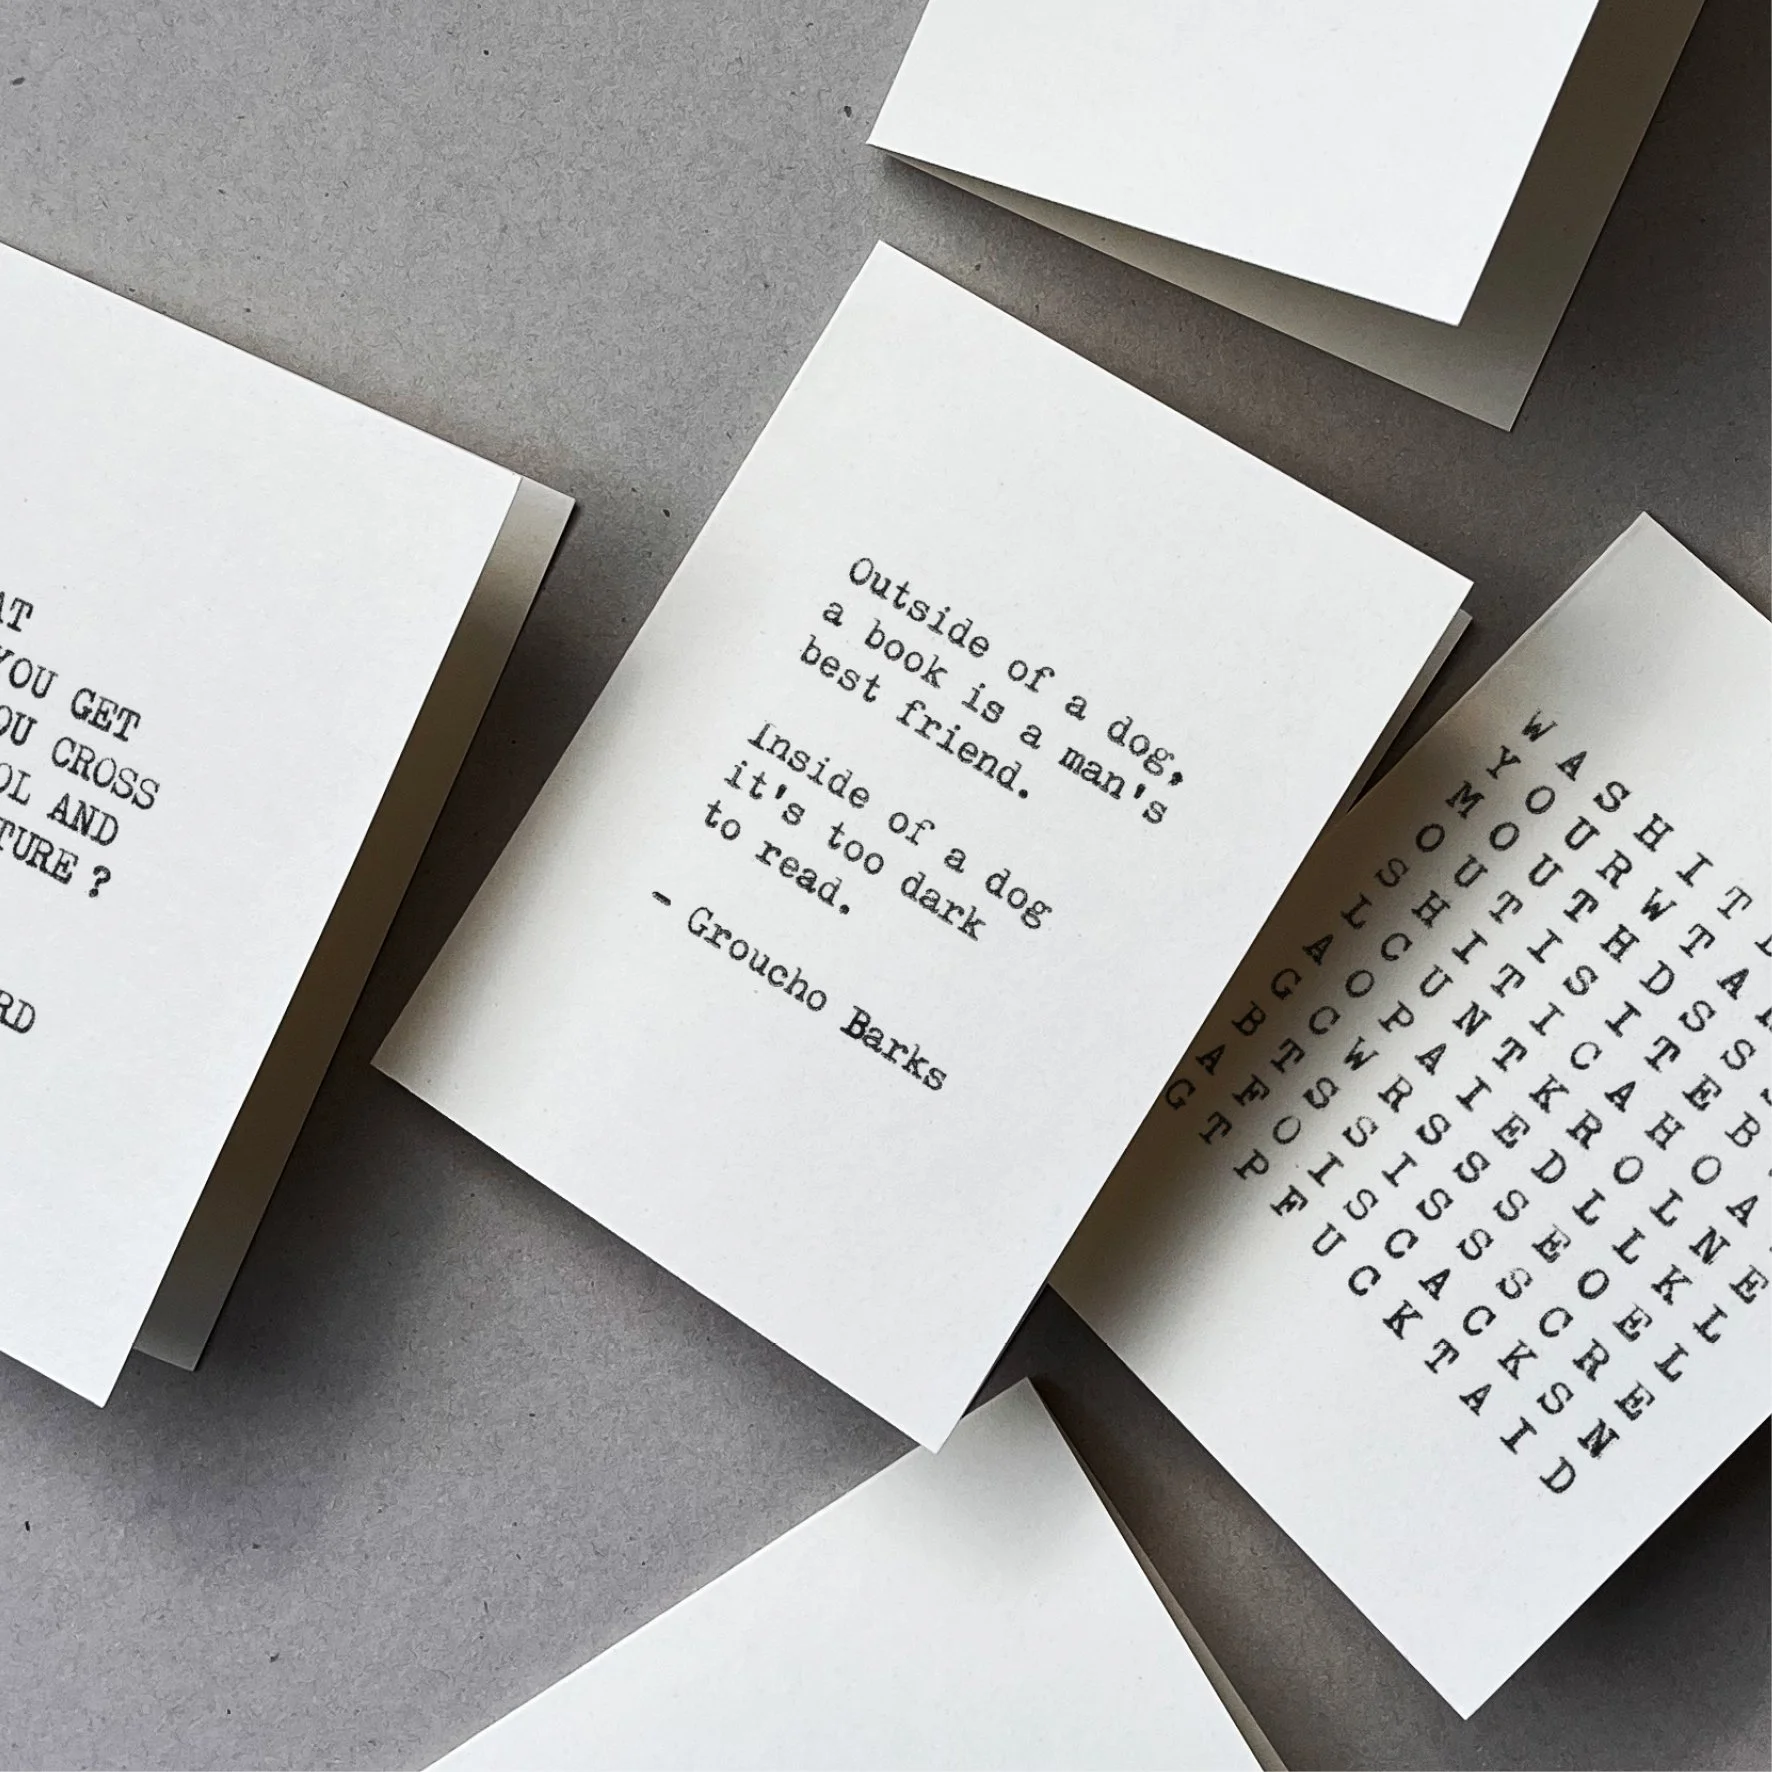 AT
YOU GET
OU CROSS
OL AND
TURE ?
RD
Outside of a dog,
a book is a man's
best friend.
Inside of a dog
it's too dark
to read.
- Groucho Barks
W A S H I T
Y O U R W T A
M O U T H D S S
O U T I S I T E B
S H I T I C A H O A
L C U N T K R O L N E
A O P A I E D L L K L
G C W R S S S E O E L
B T S S I S S S C R E
A F O I S C A C K S N
G T P F U C K T A I D